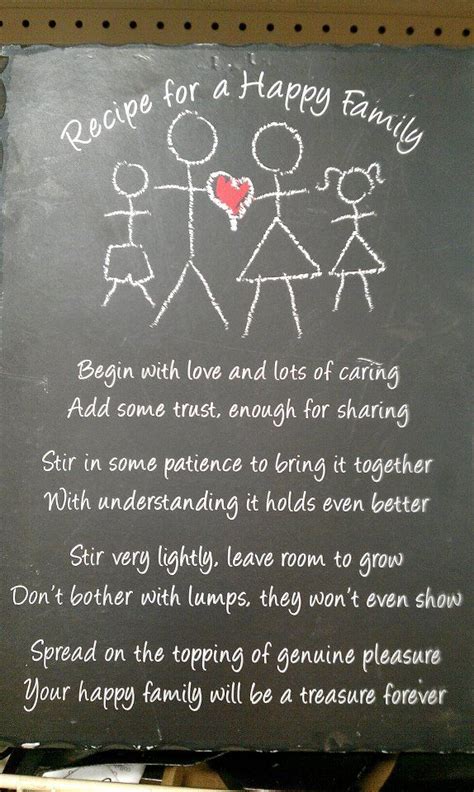 Recipe for a Happy Family
Begin with love and lots of caring
Add some trust, enough for sharing
Stir in some patience to bring it together
With understanding it holds even better
Stir very lightly, leave room to grow
Don't bother with lumps, they won't even show
Spread on the topping of genuine pleasure
Your happy family will be a treasure forever